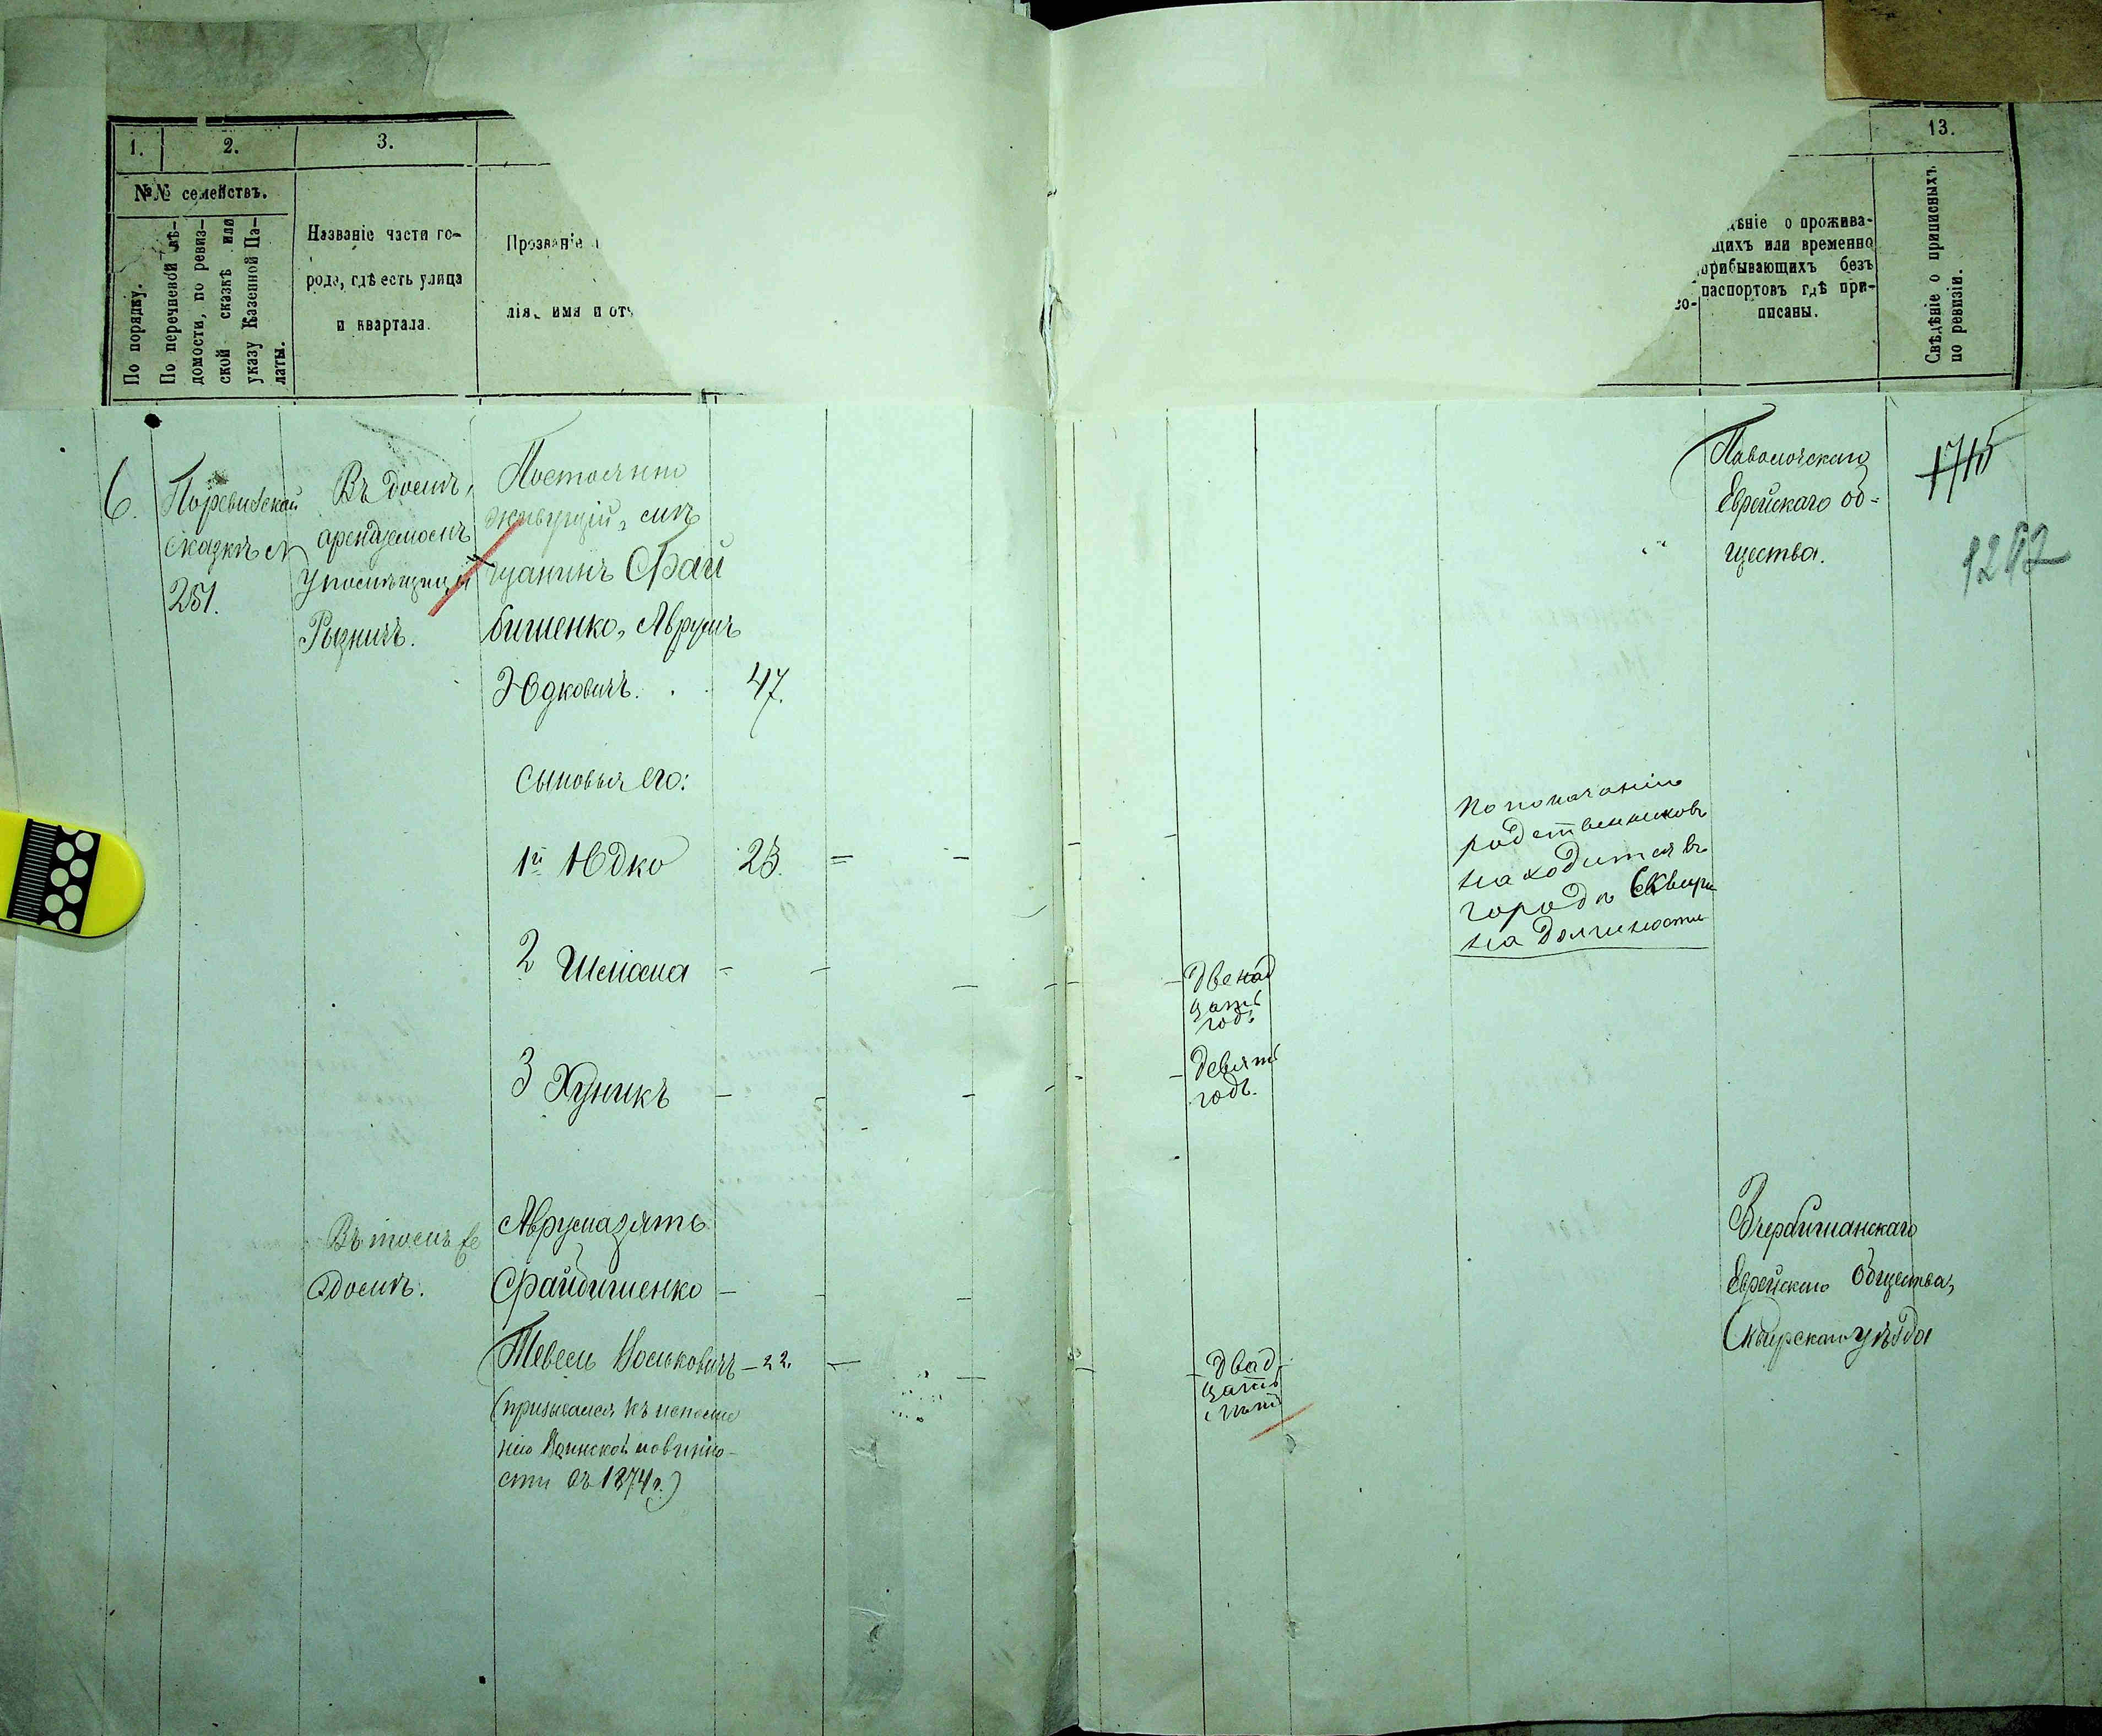 1.
2.
3.
№№ семействъ.
По порядку.
По перечневой вѣ-
домости, по ревиз-
ской сказкѣ или
указу Казенной Па-
латы.
Названіе части го-
рода, гдѣ есть улица
и квартала.
Прозваніе
лія, имя и отч
13.
дѣніе о прожива-
щихъ или временно
прибывающихъ безъ
паспортовъ гдѣ при-
писаны.
Свѣдѣніе о приписныхъ
по ревизіи.
6.
По ревизской
сказкѣ №
251.
Въ домѣ,
арендуемомъ
у помѣщицы
Постоянно
живущій, мѣ
щанинъ Фай
бишенко, Аврумъ
Юдковичъ. . . 47.
Паволочскаго
Еврейскаго об=
щества.
1715
сыновья его:
1й Юдко 23.
По показанію
родственниковъ
находится въ
городѣ Сквирѣ
на должности
2 Шлиома
двенад
цать
годъ
3 Хуникъ
девять
годъ.
Въ томъ же
домѣ.
Аврума зять
Файбишенко
Тевель Іоськовичъ - 22.
(призывался къ исполне
нію Воинской повинно-
сти въ 1874 г.)
двад
цать
Вчерайшанскаго
Еврейскаго Общества,
Сквирскаго уѣзда